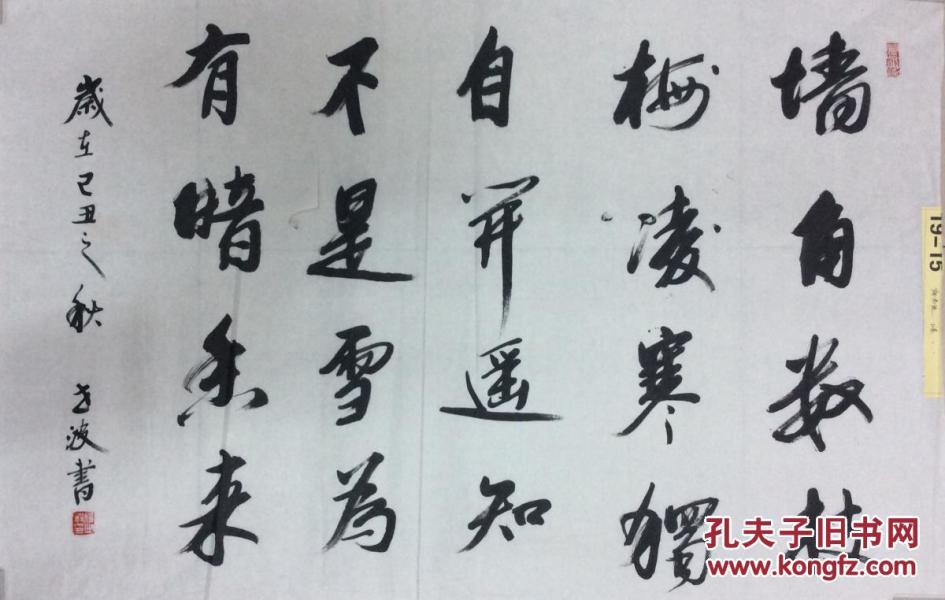 墙角数枝
梅凌寒獨
自開遥知
不是雪為
有暗香来
歲在己丑之秋 波書
19-15
孔夫子旧书网
www.kongfz.com